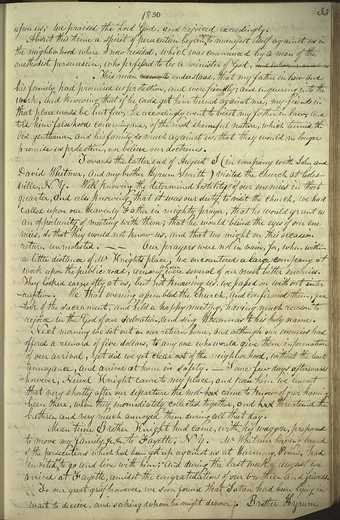 1830
53
upon us; we praised the Lord God, and rejoiced exceedingly.
About this time a spirit of persecution began to manifest itself against us in
the neighborhood where I now resided, which was commenced by a man of the
methodist persuasion, who professed to be a minister of God,
This man understood that my father in law and
his family had promised us protection, and were friendly; and enquiring into the
work, and knowing that if he could get him turned against me, my friends in
that place would be but few; he accordingly went to visit my father in law, and
told him falsehoods concerning me, of the most shameful nature, which turned the
old gentleman and his family so much against us, that they would no longer
promise us protection, nor believe our doctrines.
Towards the latter end of August I (in company with John and
David Whitmer, and my brother Hyrum Smith) visited the Church at Coles-
ville, N.Y. Well knowing the determined hostility of our enemies in that
quarter, and also knowing that it was our duty to visit the Church, we had
called upon our Heavenly Father, in mighty prayer, that he would grant us
an opportunity of meeting with them; that he would blind the eyes of our ene-
mies, so that they would not know us, and that we might on this occasion
return unmolested. — Our prayers were not in vain, for, when within
a little distance of Mr Knight's place, we encountered a large company at
work upon the public road, among whom were several of our most bitter enemies.
They looked earnestly at us, but not knowing us, we passed on without inter-
ruption. We that evening assembled the Church, and confirmed them, par-
took of the sacrament, and held a happy meeting, having much reason to
rejoice in the God of our salvation, and sing Hosannas to his holy name.
Next morning we set out on our return home, and although our enemies had
offered a reward of five dollars, to any one who would give them information
of our arrival, yet did we get clear out of the neighborhood, without the least
annoyance, and arrived at home in safety. — Some few days afterwards
however, Newel Knight came to my place, and from him we learnt
that very shortly after our departure the mob had come to know of our having
been there, when they immediately collected together, and had threatened the
brethren and very much annoyed them during all that day.
Mean time Brother Knight had come, with his wagon, prepared
to move my family, &c. &c. to Fayette, N.Y. Mr Whitmer having heard
of the persecutions which had been got up against us at Harmony, Penn., had
invited us to go and live with him; and during the last week of August we
arrived at Fayette, amidst the congratulations of our brethren and friends.
To our great grief however, we soon found that Satan had been lying in
wait to deceive, and seeking whom he might devour. Brother Hyrum